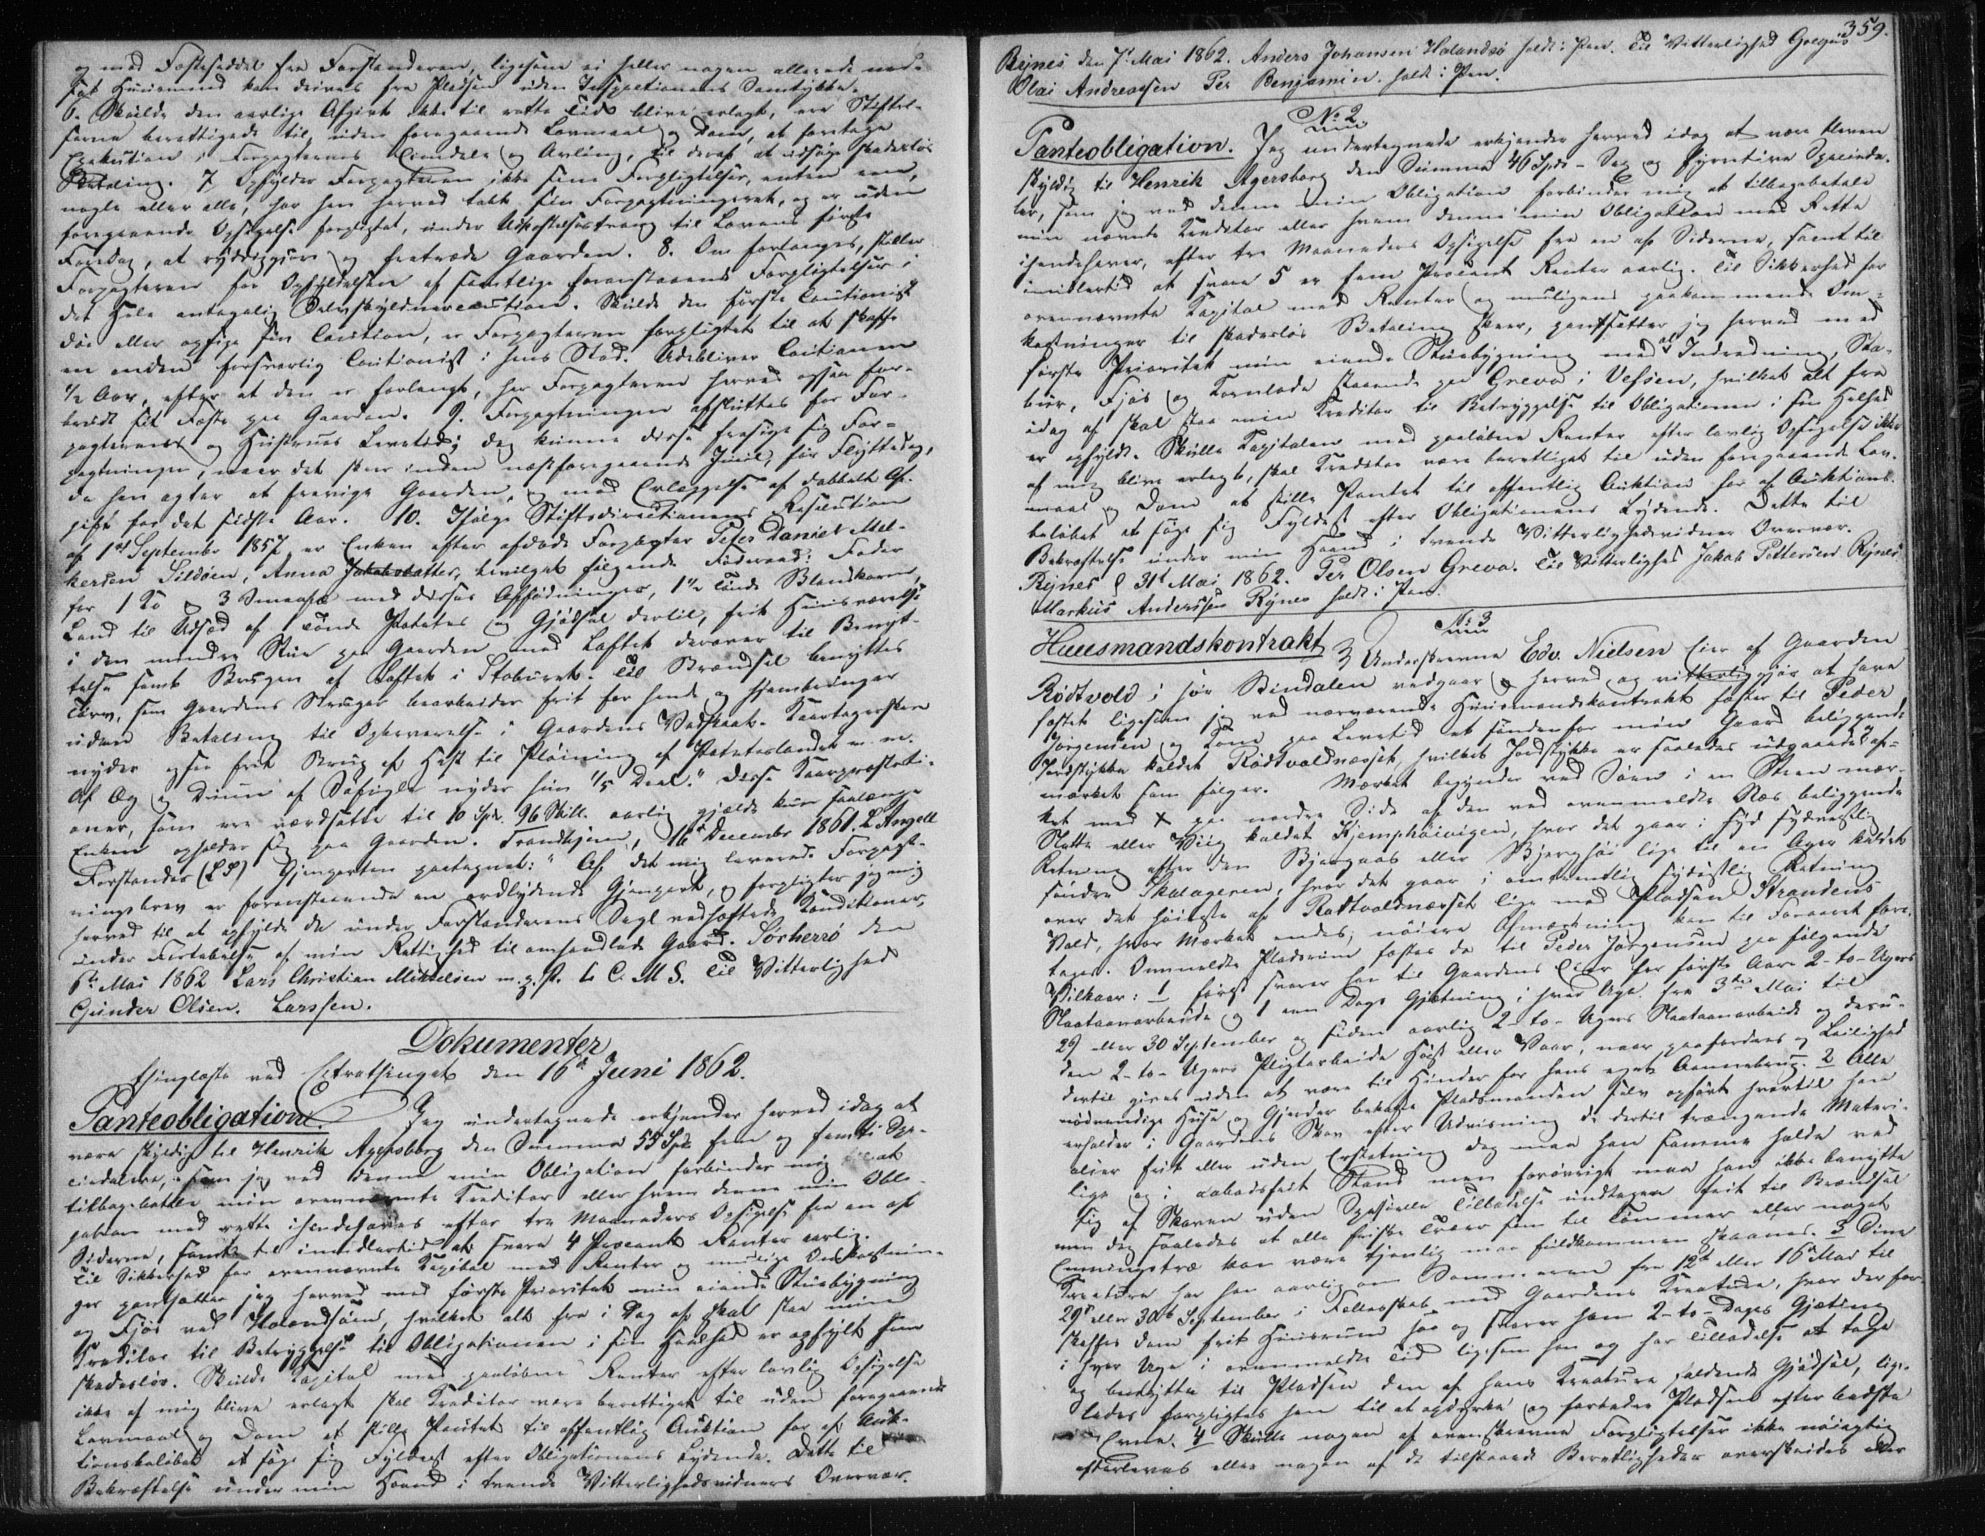 og med Fæsteseddel fra Forstanderen, ligesom ei heller nogen allerede ind-
sat Huusmand kan drives fra Pladsen uden Inspectionens Samtykke.
6. Skulde den aarlige Afgivt ikke til rette Tid blive erlagt, ere Stiftel-
serne berettigede til, uden foregaaende Lovmaal og Dom, at foretage
Exekution i Forpagterens Eiendele og Avling, til deraf at udsøge skadesløs
Betaling. 7 Opfylder Forpagteren ikke sine Forpligtelser, enten een,
nogle eller alle, har han herved tabt sin Forpagtningsret, og er uden
foregaaende Opsigelse forpligtet, under Udkastelsestvang til Lovens første
Faredag, at ryddiggjøre og fratræde Gaarden. 8. Om forlanges, stiller
Forpagteren for Opfyldelsen af samtlige foranstaaende Forpligtelser i
det Hele antagelig Selvskyldnercaution. Skulde den første Cautionist
døe eller opsige sin Caution, er Forpagteren forpligtet til at skaffe
en anden forsvarlig Cautionist i hans Sted. Udebliver Cautionen
1/2 Aar, efter at den er forlangt, har Forpagteren herved ogsaa for-
brudt sit Fæste paa Gaarden. 9. Forpagtningen afsluttes for For-
pagterens og Hustrues Levetid; dog kunne disse frasige sig For-
pagtningen, naar det skeer inden næstforegaaende Juul, før Flyttedag,
da han agter at fravige Gaarden, og mod Erlæggelse af dobbelt Af-
gift for det sidste Aar. 10. Ifølge Stiftsdirectionens Resolution
af 1st September 1857 er Enken efter afdøde Forpagter Peter Daniel Mel-
kersen Sildøen, Anna Jakobsdatter, bevilget følgende Føderaad: Foder
for 1 Ko og 3 Smaafæ med disses Affødninger, 1 1/2 Tønde Blandkorn,
Land til Udsæd af Tønde Potetes og Gjødsel dertil, frit Huusværelse
i den mindre Stue paa Gaarden med Loftet derover til Benyt-
telse samt Brugen af Loftet i Stoburet. Til Brændsel benyttes
Torv, som Gaardens Bruger bearbeider frit for hende og hjembringer
uden Betaling til Opbevarelse i Gaardens Vedskaat. Kaartagersken
nyder ogsaa frit Brug af Hest til Pløining af Poteteslandet m. m.
Af Æg og Duun af Søfugle nyder hun 1/5 Deel." Disse Kaarpræstati-
oner, som ere værdsatte til 10 Spd. 96 Skill. aarlig gjælde kun saalænge
Enken opholder sig paa Gaarden. Trondhjem, 16d December 1861. L Angell
Forstander (L.S) Gjenparten paategnet: " Af det mig leverede Forpagt-
ningsbrev er foranstaaende en ordlydende Gjenpart, og forpligter jeg mig
herved til at opfylde de under Forstanderens Segl vedhæftede Konditioner,
under Fortabelse af min Rettighed til omhandlede Gaard. Sørherrø den
6te Mai 1862 Lars Christian Mikkelsen m. f. P. L. C. M. S. Til Vitterlighed
Gunder Olsen. Larssen.
Dokumenter
thinglæste ved Extrathinget den 16de Juni 1862.
Panteobligation. Jeg undertegnede erkjender herved idag at
være skyldig til Henrik Agersborg den Summa 55 Spd fem og femti Spe-
ciedalere, som jeg ved denne min Obligation forbinder mig til at
tilbagebetale min ovennævnte Kreditor eller hvem denne min Obli-
gation med rette ihændehaves efter tre Maaneders Opsigelse fra en af
Siderne, samt til imidlertid at svare 4 Procent Renter aarlig.
Til Sikkerhed for ovennævnte Kapital med Renter og mulige Omkostnin-
ger pantsætter jeg herved med første Prioritet min eiende Stuebygning
og Fjøs ved Holandsøen, hvilket alt fra i Dag af skal staa min
Kreditor til Betryggelse til Obligationen i sin Heelhed er opfyldt som
skadesløs. Skulde Capital med paaløbne Renter efter lovlig Opsigelse
ikke af mig blive erlagt skal Kreditor være berettiget til uden foregaaende
Lovmaal og Dom at stille Pantet til offentlig Auktion for af Auk-
tionsbeløbet at søge sig Fyldest efter Obligationens Lydende. Dette til
Bekræftelse under min Haand i tvende Vitterlighedsvidners Overvær.
359.
Rynes den 7d Mai 1862. Anders Johansen Holandsø holdt i Pen. Til Vitterlighed
Olai Andreassen Per Benjamin. holdt i Pen.
No 2
Panteobligation. Jeg undertegnede erkjender herved idag at være bleven
skyldig til Henrik Agersborg den Summa 46 Spd – Sex og fyrretive Speciedа-
ler, som jeg ved denne min Obligation forbinder mig at tilbagebetale
min nævnte Kreditor eller hvem denne min Obligation med Rette
ihændehaver, efter tre Maaneders Opsigelse fra en af Siderne, samt til
imidlertid at svare 5 er fem Procent Renter aarlig. Til Sikkerhed for
ovennævnte Kapital med Renter og muligens paakommende Om-
kostninger til skadesløs Betaling skeer, pantsætter jeg herved med
første Prioritet min eiende Stuebygning med al Indredning, Sta-
bur, Fjøs og Kornlade staaende paa Greva i Vefsen, hvilket alt fra
idag af skal staa min Kreditor til Betryggelse til Obligationen i sin Helhed
er opfyldt. Skulle Kapitalen med paaløbne Renter efter lovlig Opsigelse ikke
af mig blive erlagt, skal Kreditor være berettiget til uden foregaaende Lov-
maal og Dom at stille Pantet til offentlig Auktion for af Auktions-
beløbet at søge sig Fyldest efter Obligationens Lydende. Dette til
Bekræftelse under min Haand i tvende Vitterlighedsvidners Overvær.
Rejnes d 31d Mai 1862. Per Olsen Greva. Til Vitterlighed Jakob Pettersen Rynes
Markus Anderssen Rynes holdt i Pen.
No 3
Huusmandskontrakt Underskrevne Edv. Nielsen Eier af Gaarden
Rødtvold i Sør Bindalen vedgaar herved og vitterliggjør at have
fæstet ligesom jeg ved nærværende Huusmandskontrakt fæster til Peder
Jørgensen og Kone paa Levetid et søndenfor min Gaard beliggende
Jordstykke kaldet Rødtvoldnæsset, hvilket Jordstykke er saaledes udgaaende af-
mærket som følger. Mærket begynder ved Søen i en Steen mær-
ket med X paa nordre Side af den ved ovenmeldte Næs beliggende
Slette eller Viig kaldet Kjemphøivigen, hvor det gaar i syd sydvestlig
Retning efter den Bjergaas eller Bjerghøi lige til en Ager kaldet
søndre Skolageren, hvor det gaar i omtrentlig sydøstlig Retning
over det høieste af Rødtvoldnæsset lige mod Pladsen Strandens
Vold, hvor Mærket endes, nøiere Afmærkning kan til Foraaret fore-
tages. Ommeldte Pladsrum fæstes da til Peder Jørgensen paa følgende
Vilkaar: 1 først svarer han til Gaardens Eier for første Aar 2-to-Ugers
Slaataanarbeide og 1 een Dags Gjætning i hver Uge fra 3die Mai til
29 eller 30 September og siden aarlig 2-to-Ugers Slaataanarbeide og desu-
den 2-to-Ugers Pligtarbeide Høst eller Vaar, naar paafordres og Leilighed
dertil gives uden at være til Hinder for hans eget Aannebrug. 2 Alle
nødvendige Huse og Gjerder bekoster Pladsmanden selv opført hvortil han
erholder i Gaardens Skov efter Udvisning de dertil trængende Materi-
alier frit eller uden Erstatning dog maa han samme holde ved
lige og i aabodsfrit Stand men forøvrigt maa han ikke benytte
sig af Skoven uden Specielle Tilladelse undtagen frit til Brændsel
men dog saaledes at alle friske Træer som til Tømmer eller noget
Emningstræ kan være tjenlig maa fuldkommen skaanes. 3 Sine
Kreature har han aarlig om Sommeren fra 12te eller 16de Mai til
29de eller 30te September i Fellesskab med Gaardens Kreature, hvor der for-
skaffes dem frit Huusrum for og svarer han 2-to-Dages Gjætning
i hver Uge i ovenmeldte Tid ligesom han og har Tilladelse at tage
og benytte til Pladsen den af hans Kreature faldende Gjødsel, lige-
ledes forpligtes han til at opdyrke og forbedre Pladsen efter bedste
Evne. 4 Skulle nogen af ovenskrevne Forpligtelser ikke nøiagtig
efterleves eller nogen af de tilstaaede Berettigheder overskrides eller